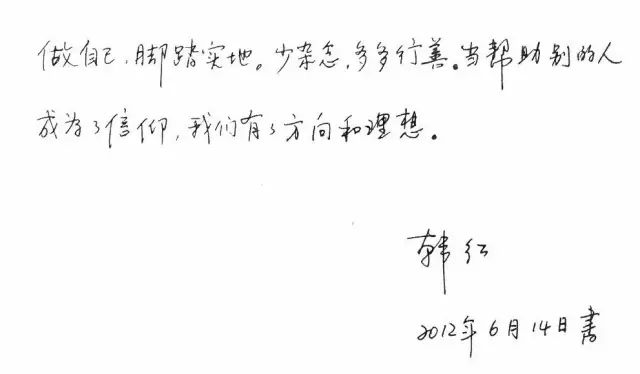 做自己,脚踏实地。少杂念,多多行善。当帮助别的人
成为了信仰,我们有了方向和理想。
韩红
2012年6月14日書